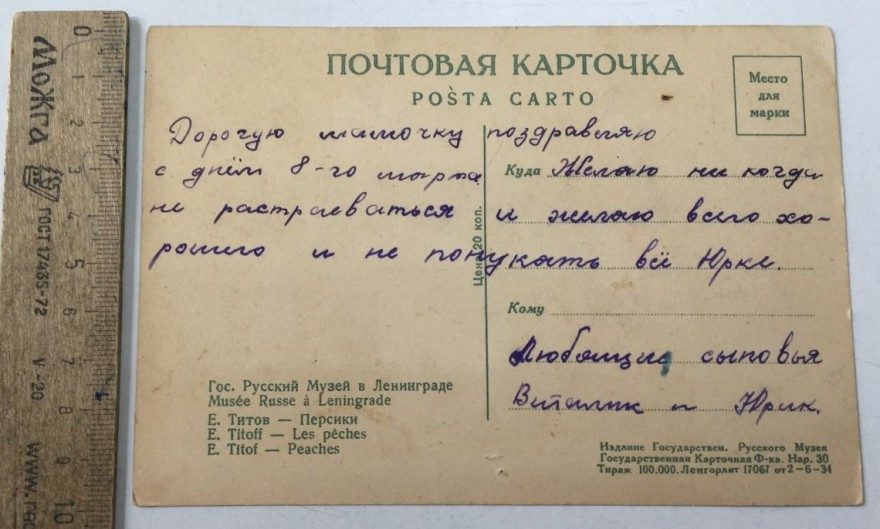 Можга
ГОСТ 17435-72
V-20
www.
0 1 2 3 4 5 6 7 8 9 10
ПОЧТОВАЯ КАРТОЧКА
POŜTA CARTO
Место
для
марки
Дорогую мамочку поздравляю
с днём 8-го марта Желаю ни когда
не растраеваться и желаю всего хо-
рошего и не понукать всё Юрке.
Куда
Цена 20 коп.
Кому
Любящие сыновья
Виталик и Юрик.
Гос. Русский Музей в Ленинграде
Musée Russe à Leningrade
Е. Титов — Персики
E. Titoff — Les pêches
E. Titof — Peaches
Издание Государствен. Русского Музея
Государственная Карточная Ф-ка. Нар. 30
Тираж 100.000. Ленгорлит 17067 от 2-6-34